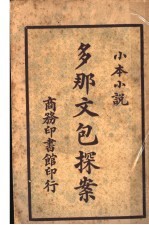 小本小說
多那文包探案
商務印書館印行